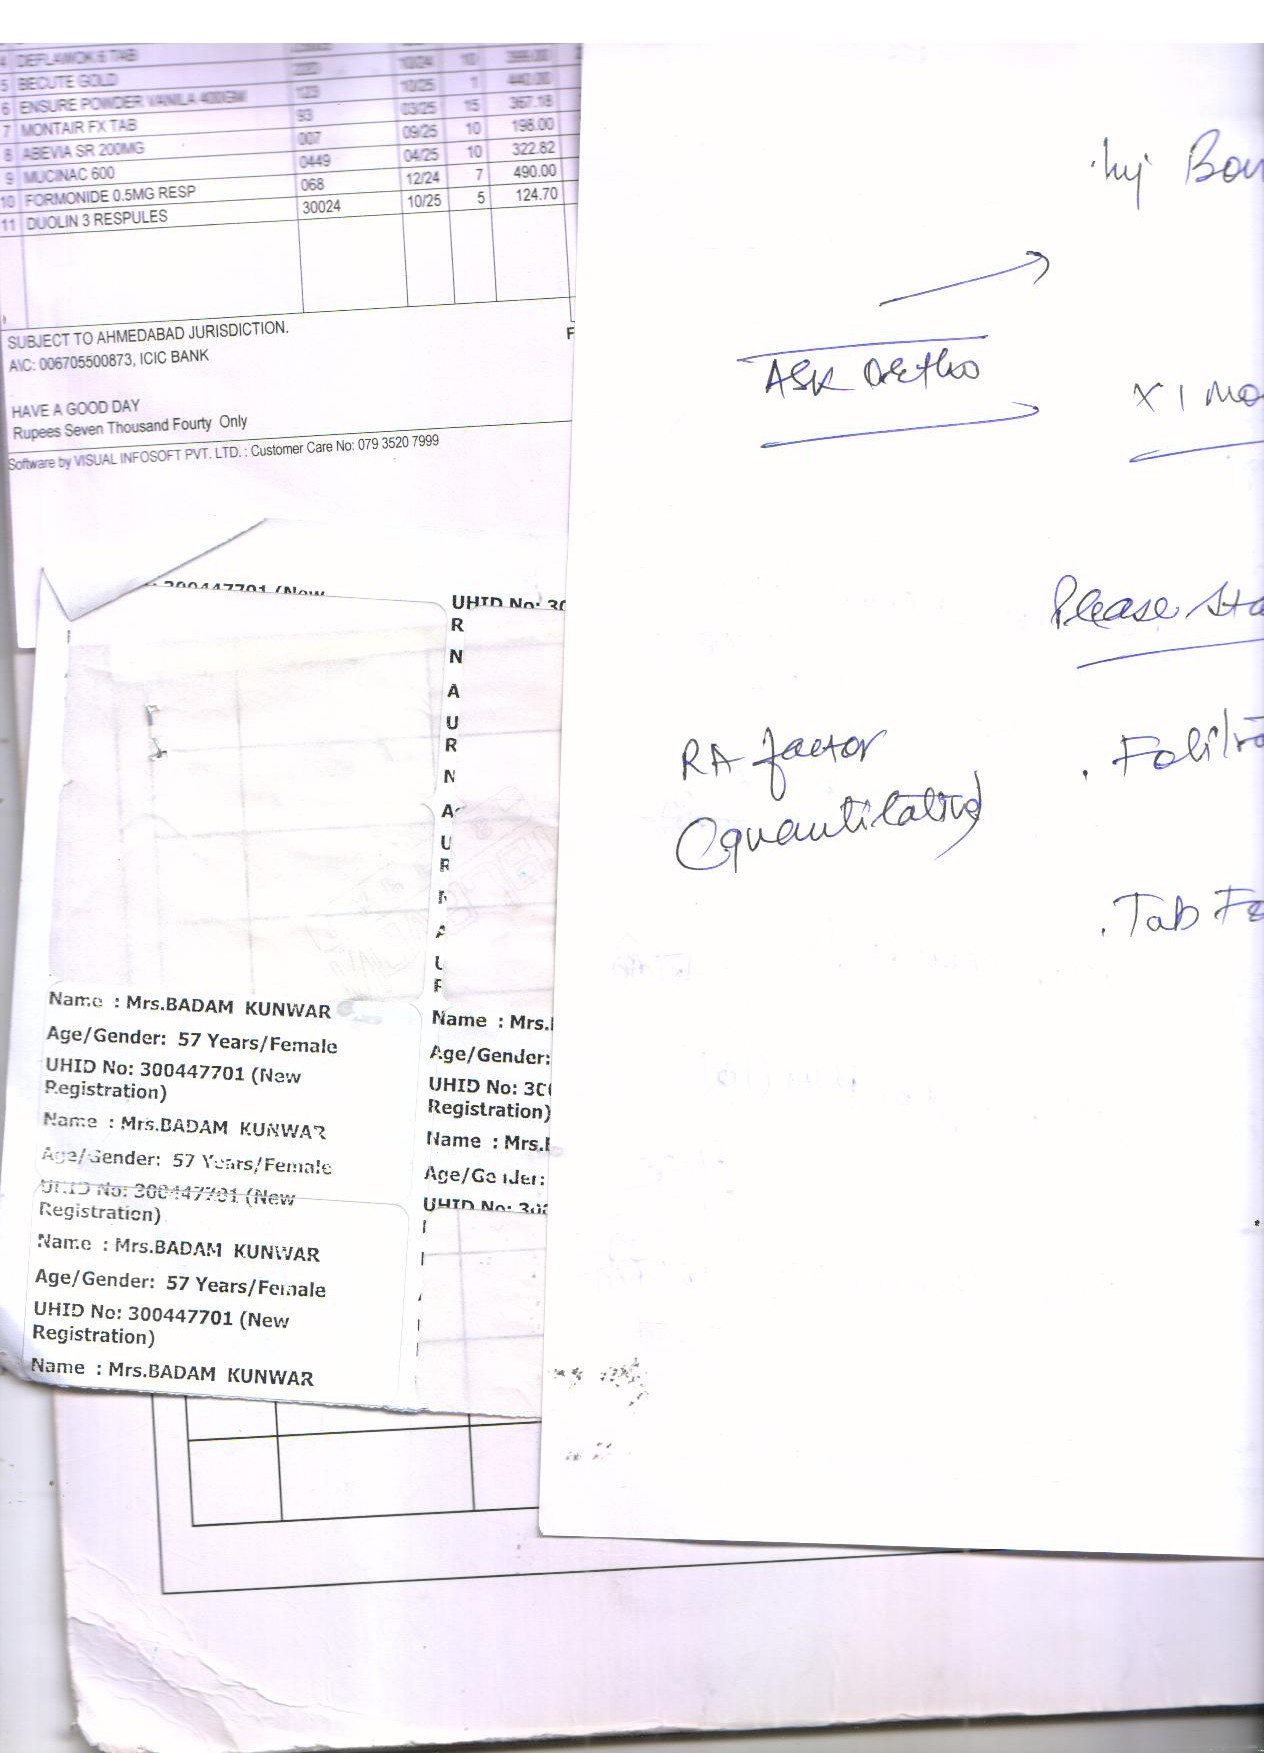 4 DEFLAWOK 6 TAB 10/24 10 399.00
5 BECUTE GOLD 10/25 1 440.00
6 ENSURE POWDER VANILA 400GM 123 03/25 15 367.18
7 MONTAIR FX TAB 93 09/25 10 198.00
8 ABEVIA SR 200MG 007 04/25 10 322.82
9 MUCINAC 600 0449 12/24 7 490.00
10 FORMONIDE 0.5MG RESP 068 10/25 5 124.70
11 DUOLIN 3 RESPULES 30024
SUBJECT TO AHMEDABAD JURISDICTION. F
A\C: 006705500873, ICIC BANK
HAVE A GOOD DAY
Rupees Seven Thousand Fourty Only
Software by VISUAL INFOSOFT PVT. LTD. : Customer Care No: 079 3520 7999
: 300447701 (New
Name : Mrs.BADAM KUNWAR
Age/Gender: 57 Years/Female
UHID No: 300447701 (New
Registration)
Name : Mrs.BADAM KUNWAR
Age/Gender: 57 Years/Female
UHID No: 300447701 (New
Registration)
Name : Mrs.BADAM KUNWAR
Age/Gender: 57 Years/Female
UHID No: 300447701 (New
Registration)
Name : Mrs.BADAM KUNWAR
UHID No: 30
R
N
A
U
R
N
A
U
R
Name : Mrs.
Age/Gender:
UHID No: 30
Registration)
Name : Mrs.
Age/Gender:
UHID No: 300
Inj Bon
ASK Ortho
X 1 Mo
Please Sta
RA factor
(quantitative)
Tab Fe